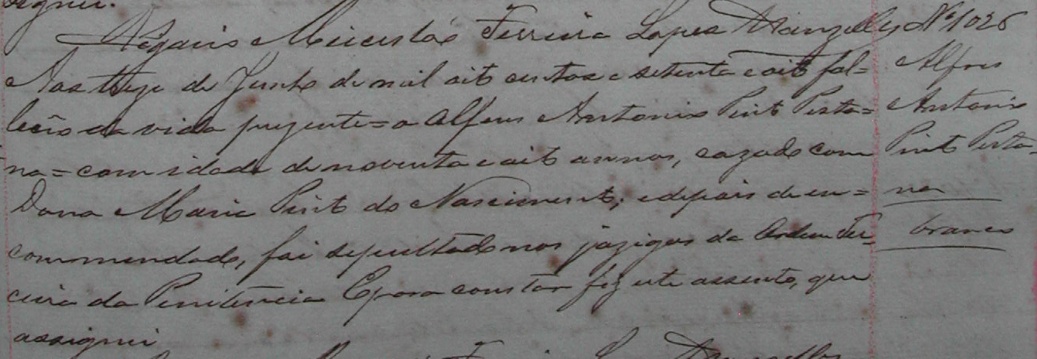 assignei.
O Vigario Ferreira Lopes
Nº 1026
Aos treze de Junho de mil oito centos e setenta e oito fal=
leceo da vida prezente = o Alferes Antonio Pinto Pesta=
na = com idade de noventa e oito annos, cazado com
Dona Maria Pinto do Nascimento; e depois de en=
commendado, foi sepultado nos jazigos da Ordem Ter=
ceira da Penitencia E para constar fiz este assento, que
assignei
Alferes
Antonio
Pinto Pesta-
na
branco